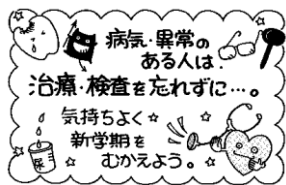 病気・異常の
ある人は、
治療・検査を忘れずに…。
気持ちよく
新学期を
むかえよう。
尿